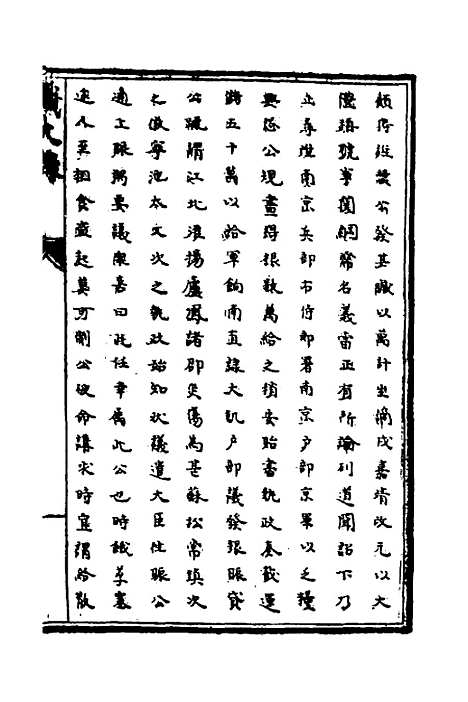 頗得姓公發其贓以萬計坐謫戍嘉靖改元以大
禮頒號事關綱常名義當正有所論列道聞詔下乃
止尋陞南京兵部右侍郎署南京戶部京畢以乏糧
興公規畫得銀數萬給之獲安貽書執政奏截運
五十萬以給軍餉南直隸大飢戶部議發銀賑貸
公疏謂江北淮揚廬鳳諸郡災傷為甚蘇松常鎮次
之徽寧池太又次之執政始知次議遣大臣往賑公
適上賑粥要議廟嘉曰此任專屬此公也時餓莩塞
途人至相食盜起莫可制公使命講求時宜謂給散